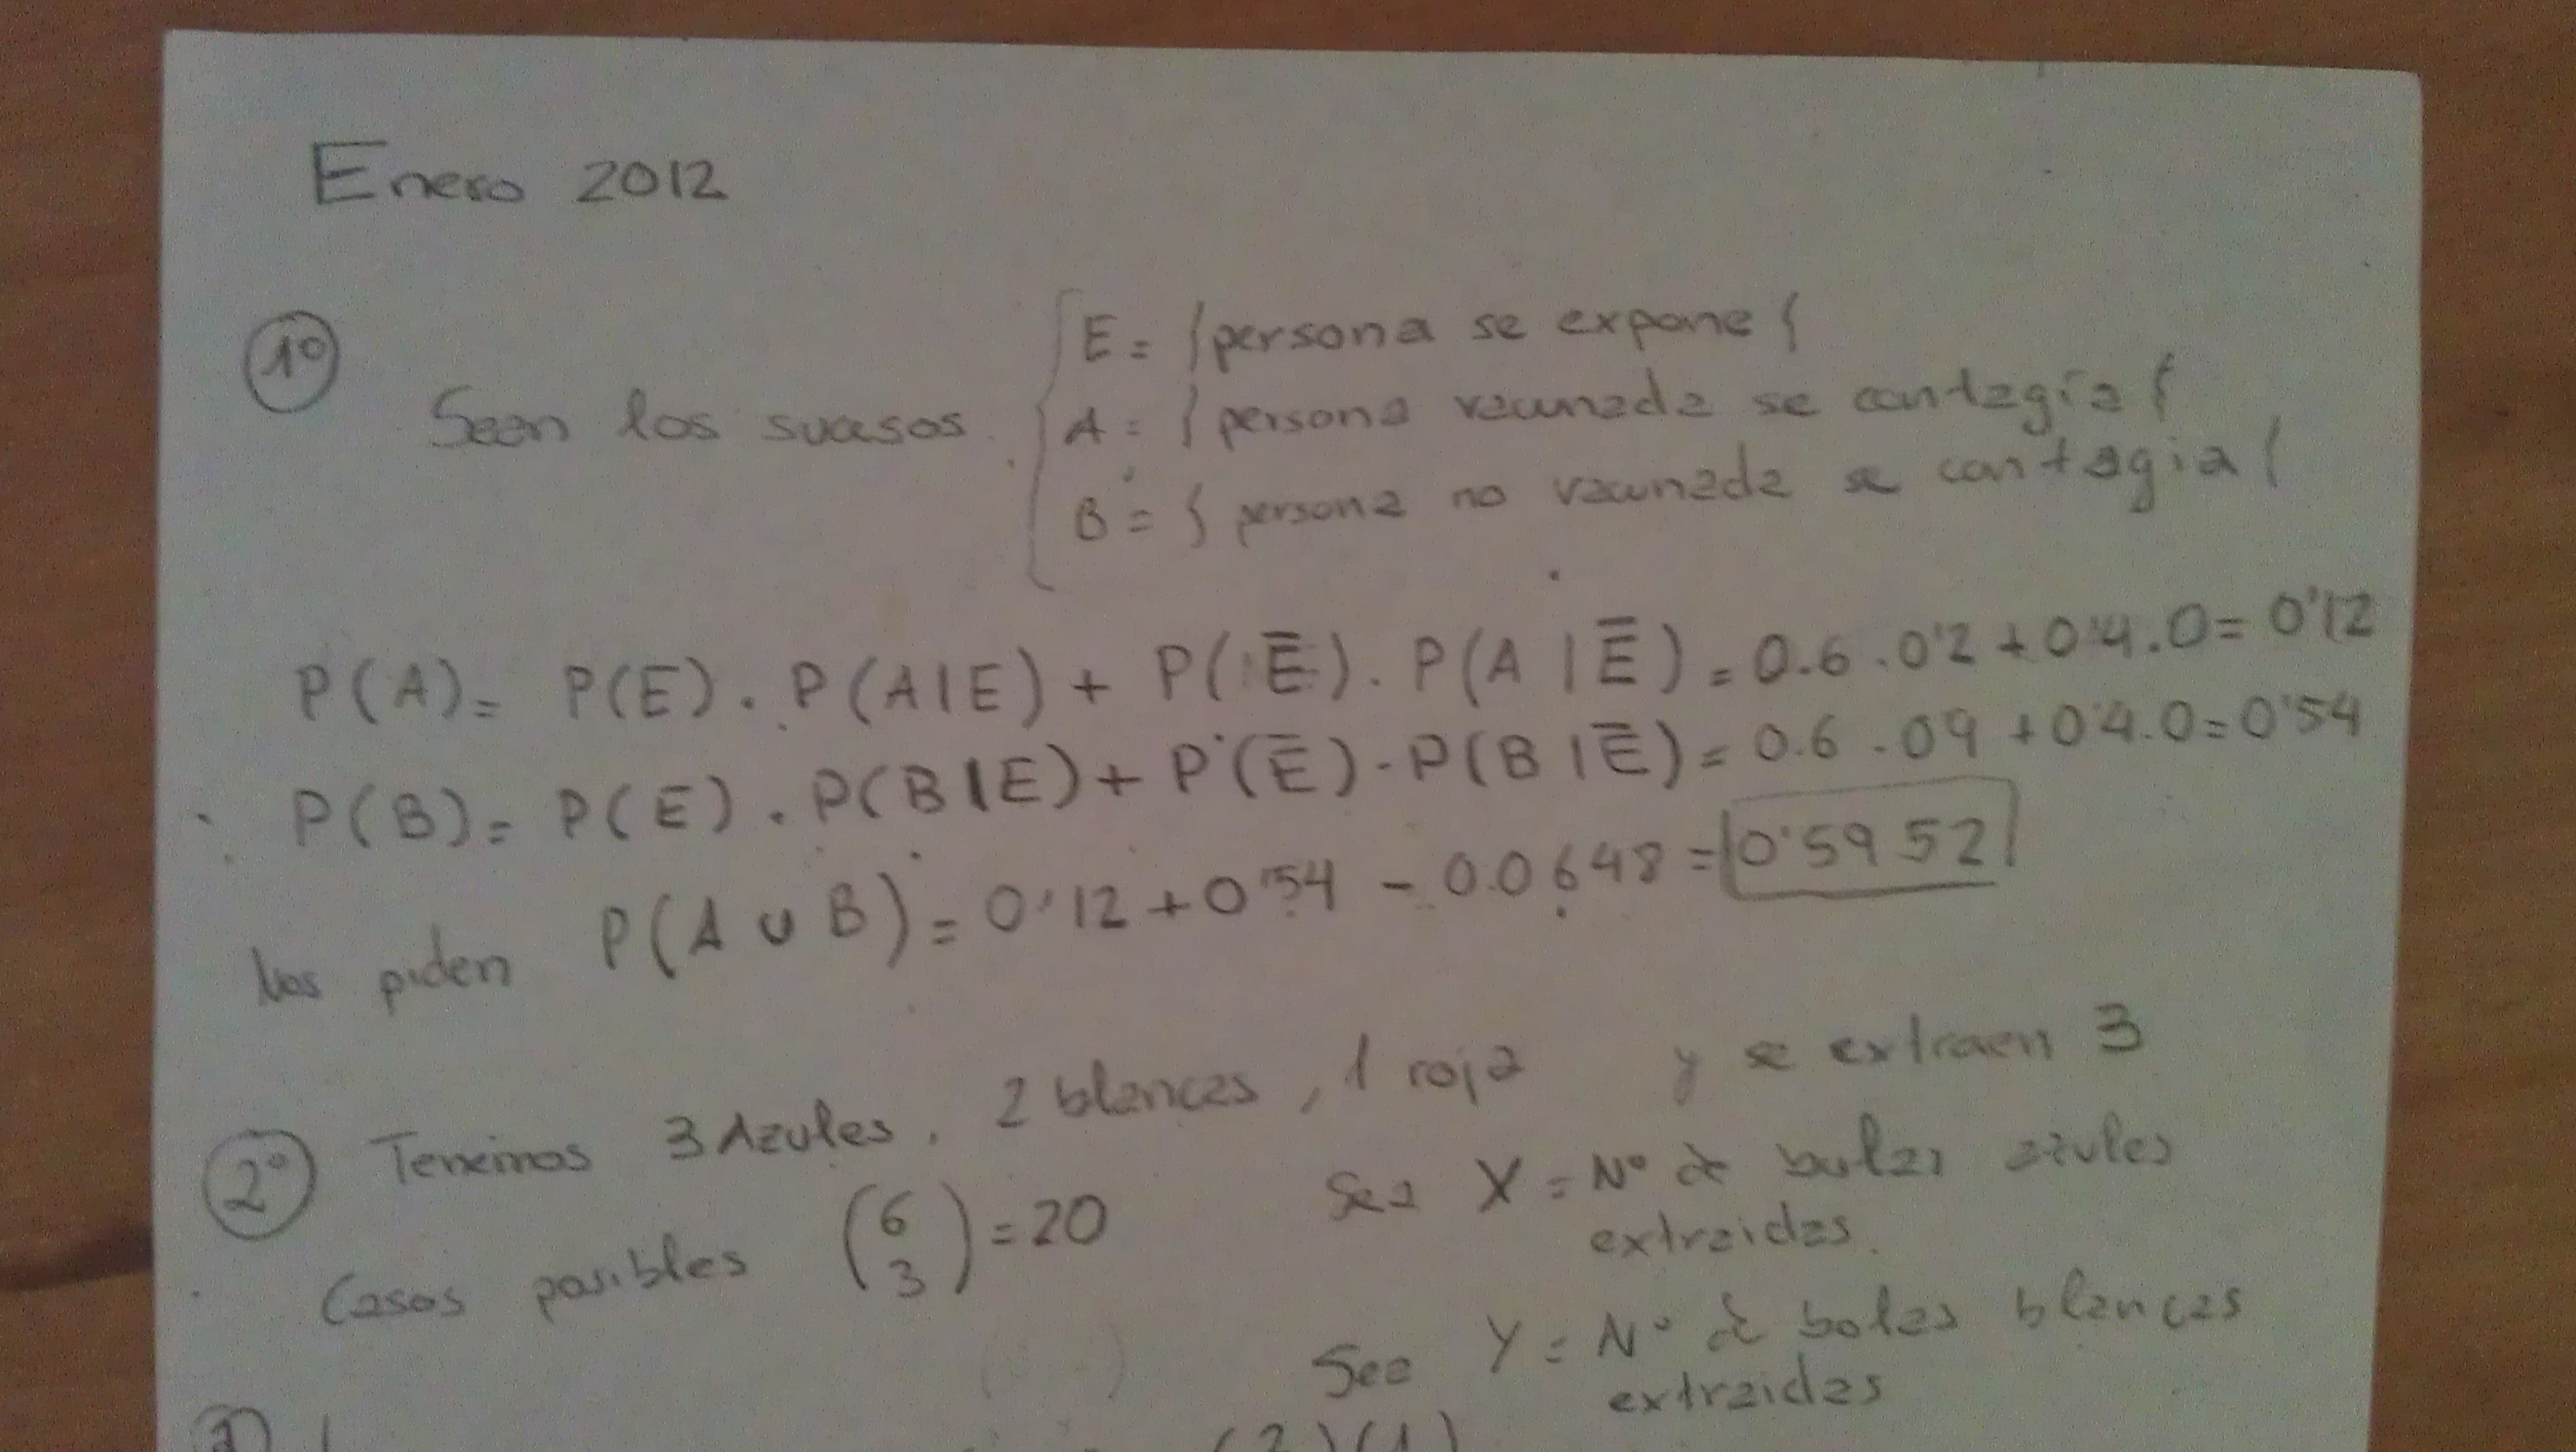 Enero 2012
1º
E = {persona se expone}
Sean los sucesos
A = {persona vacunada se contagia}
B = {persona no vacunada se contagia}
P(A) = P(E) . P(A|E) + P(Ē) . P(A|Ē) = 0.6 . 0'2 + 0'4 . 0 = 0'12
P(B) = P(E) . P(B|E) + P(Ē) . P(B|Ē) = 0.6 . 0'9 + 0'4 . 0 = 0'54
Nos piden P(A ∪ B) = 0'12 + 0'54 - 0.0648 = 0'5952
2º Tenemos 3 Azules, 2 blancas, 1 roja y se extraen 3
Casos posibles (6 3) = 20
Sea X = Nº de bolas azules
extraidas.
Sea Y = Nº de bolas blancas
extraidas